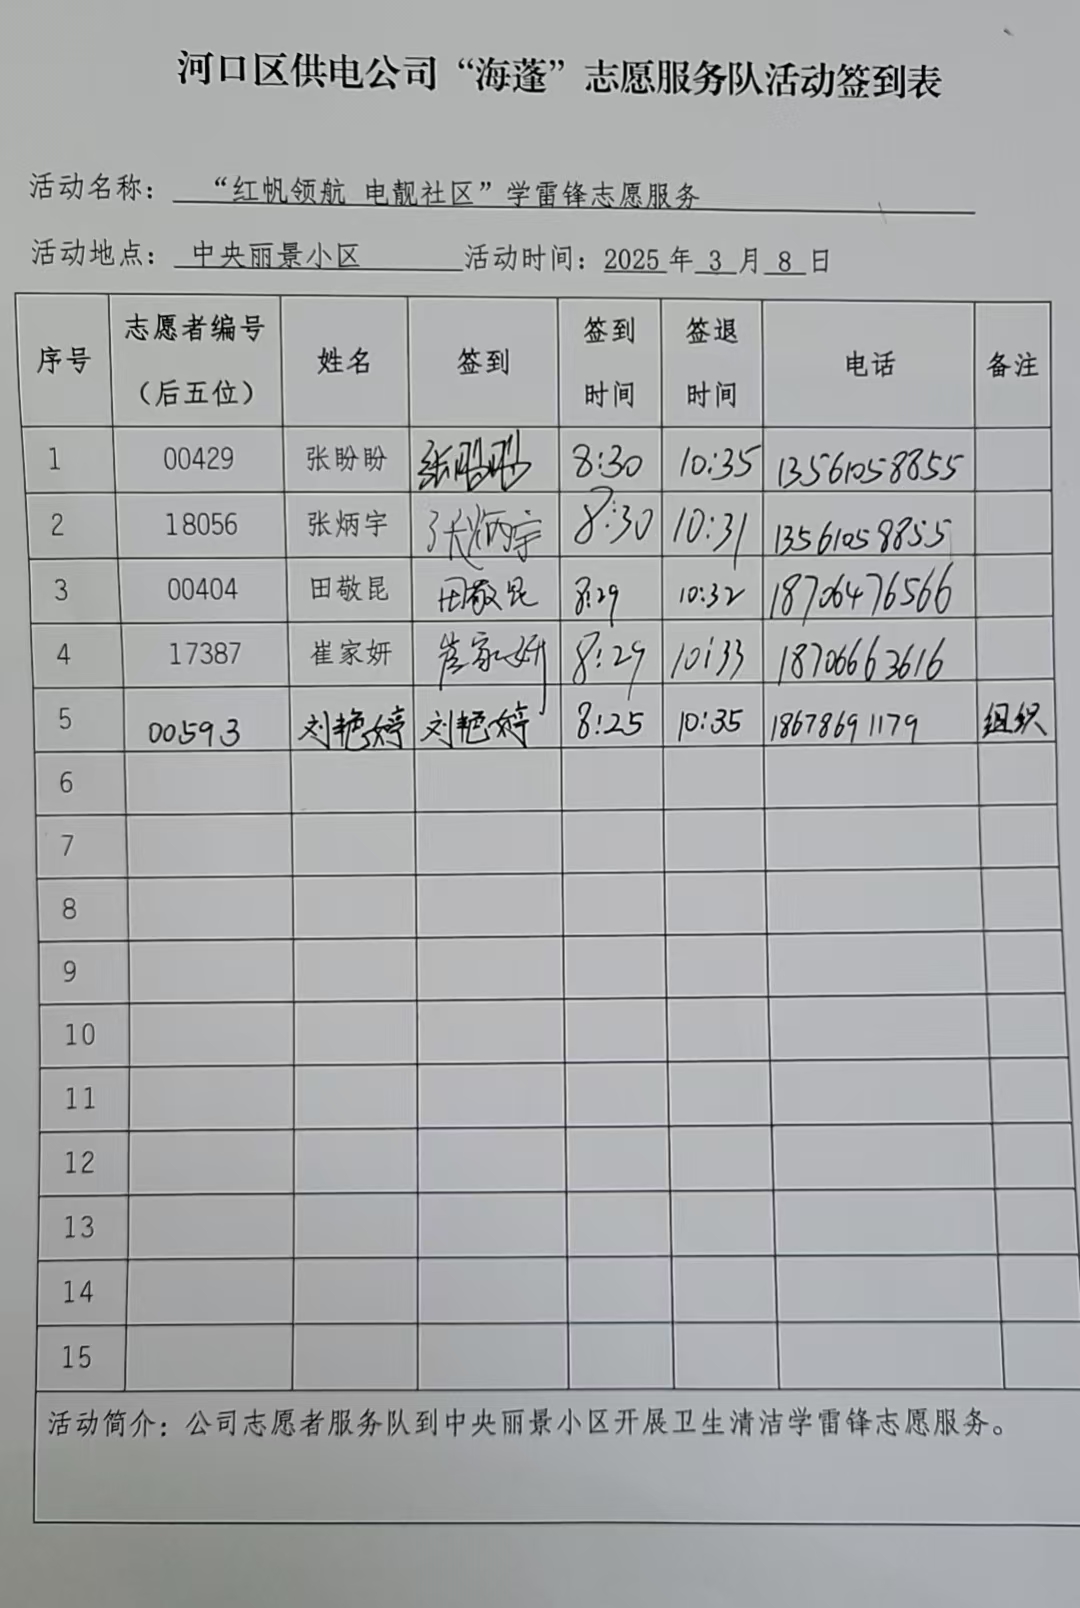 河口区供电公司“海蓬”志愿服务队活动签到表
活动名称： “红帆领航 电靓社区”学雷锋志愿服务
活动地点： 中央丽景小区 活动时间：2025 年 3 月 8 日
序号 志愿者编号（后五位） 姓名 签到 签到时间 签退时间 电话 备注
1 00429 张盼盼 张盼盼 8:30 10:35 13561058855
2 18056 张炳宇 张炳宇 8:30 10:31 13561058855
3 00404 田敬昆 田敬昆 8:29 10:32 18706476566
4 17387 崔家妍 崔家妍 8:29 10:33 18706663616
5 00593 刘艳婷 刘艳婷 8:25 10:35 18678691179 组织
6
7
8
9
10
11
12
13
14
15
活动简介：公司志愿者服务队到中央丽景小区开展卫生清洁学雷锋志愿服务。